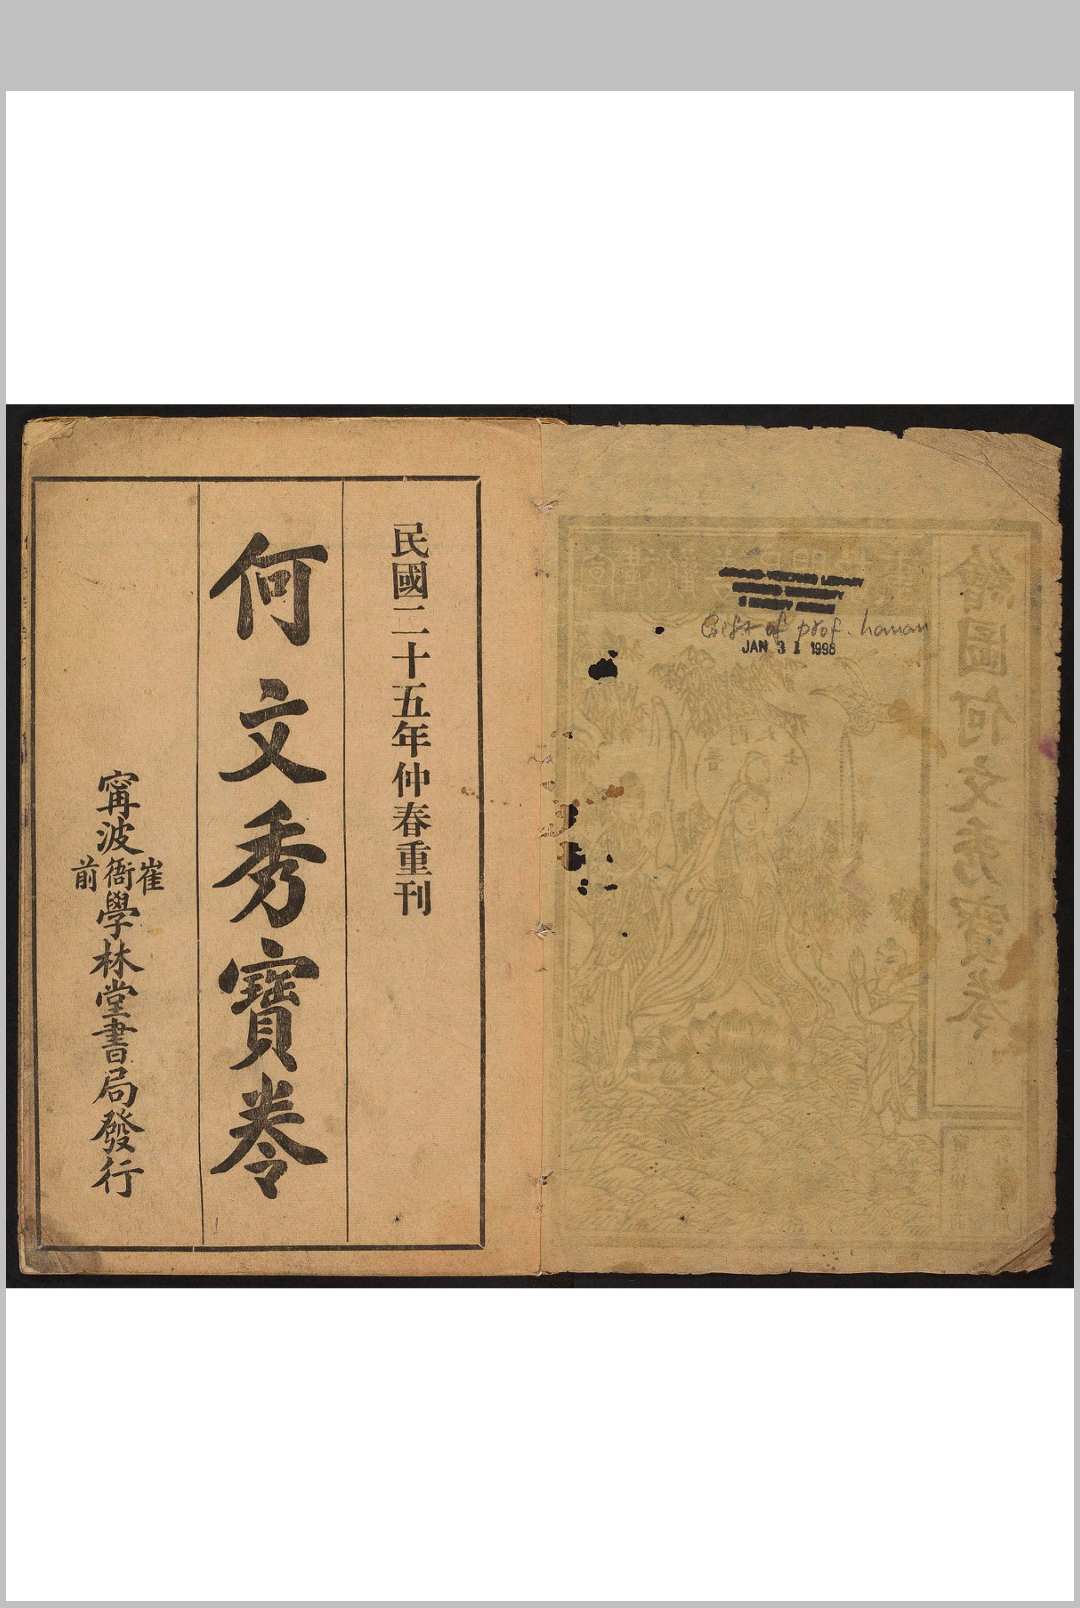 HARVARD-YENCHING LIBRARY
HARVARD UNIVERSITY
Gift of prof. hanan
JAN 31 1998
繪圖何文秀寶卷
民國二十五年仲春重刊
何文秀寶卷
寧波崔衙前學林堂書局發行